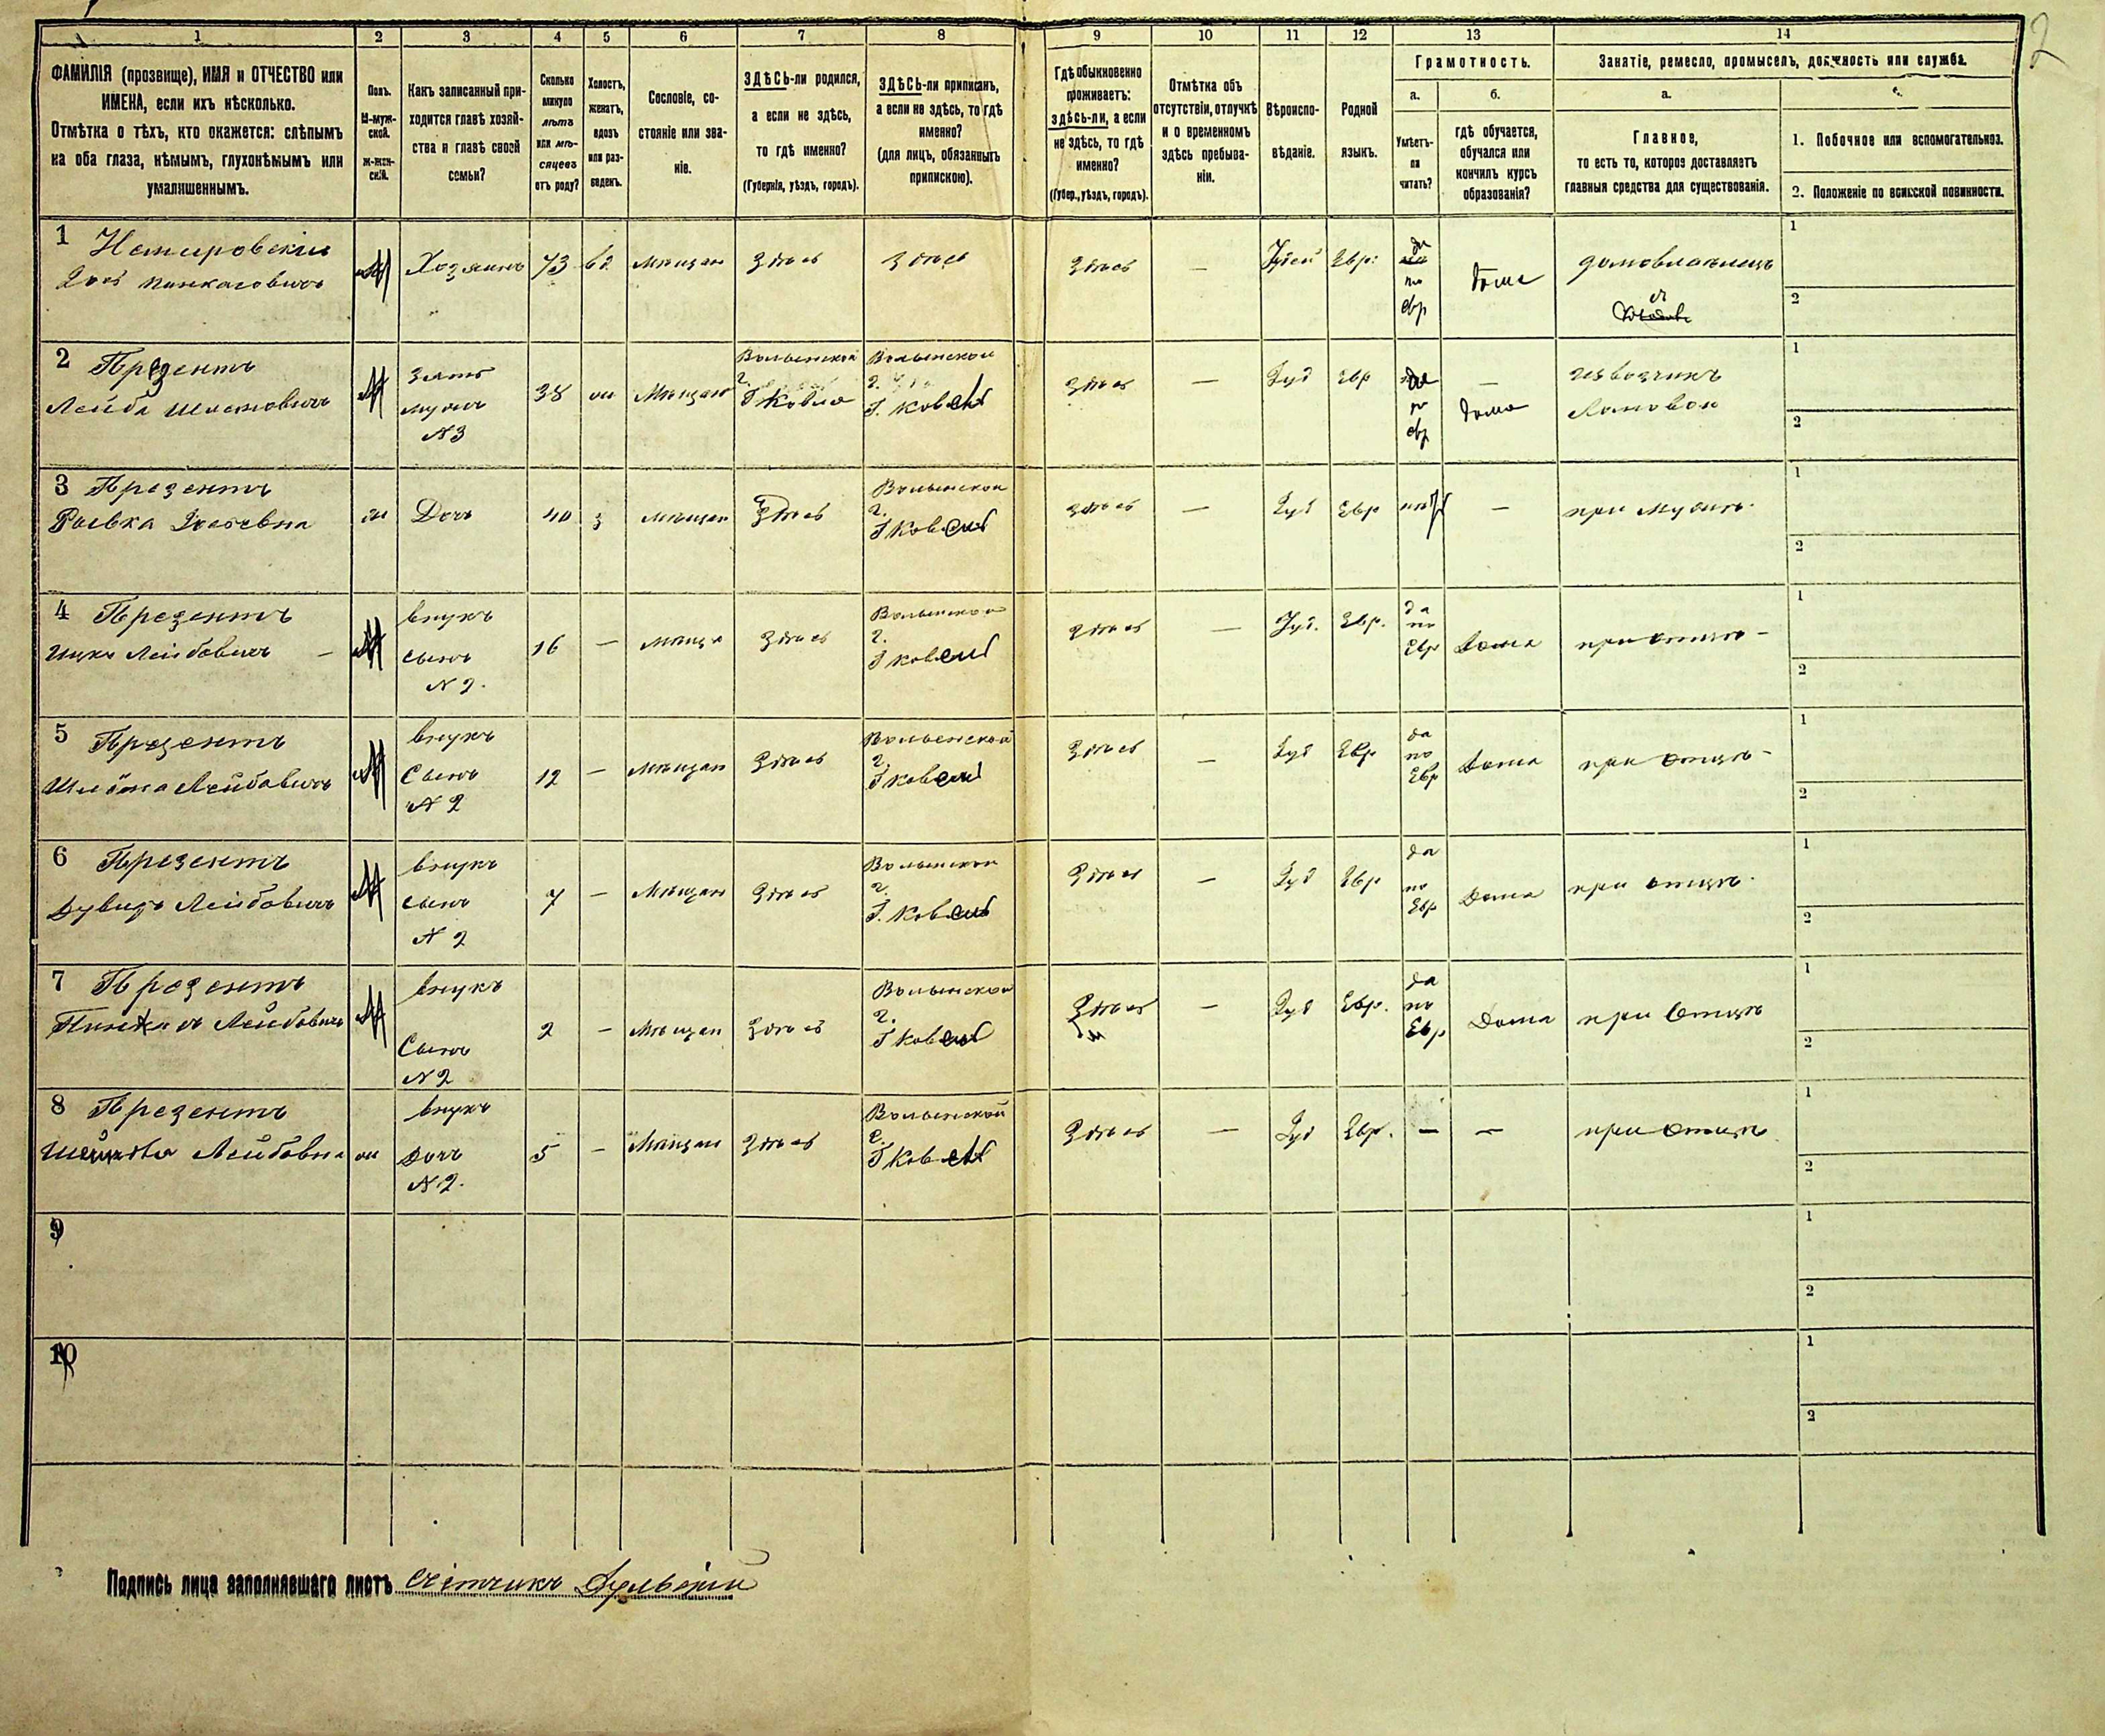 2
1 2 3 4 5 6 7 8 9 10 11 12 13 14
ФАМИЛІЯ (прозвище), ИМЯ и ОТЧЕСТВО или
ИМЕНА, если ихъ нѣсколько.
Отмѣтка о тѣхъ, кто окажется: слѣпымъ
на оба глаза, нѣмымъ, глухонѣмымъ или
умалишеннымъ.
Полъ.
М-муж-
ской.
Ж-жен-
скій.
Какъ записанный при-
ходится главѣ хозяй-
ства и главѣ своей
семьи?
Сколько
минуло
лѣтъ
или мѣ-
сяцевъ
отъ роду?
Холостъ,
женатъ,
вдовъ
или раз-
веденъ.
Сословіе, со-
стояніе или зва-
ніе.
ЗДѢСЬ-ли родился,
а если не здѣсь,
то гдѣ именно?
(Губернія, уѣздъ, городъ).
ЗДѢСЬ-ли приписанъ,
а если не здѣсь, то гдѣ
именно?
(для лицъ, обязанныхъ
припискою).
Гдѣ обыкновенно
проживаетъ:
здѣсь-ли, а если
не здѣсь, то гдѣ
именно?
(Губер., уѣздъ, городъ).
Отмѣтка объ
отсутствіи, отлучкѣ
и о временномъ
здѣсь пребыва-
ніи.
Вѣроиспо-
вѣданіе.
Родной
языкъ.
Грамотность.
а.
Умѣетъ-
ли
читать?
б.
гдѣ обучается,
обучался или
кончилъ курсъ
образованія?
Занятіе, ремесло, промыселъ, должность или служба.
а.
Главное,
то есть то, которое доставляетъ
главныя средства для существованія.
1. Побочное или вспомогательное.
2. Положеніе по воинской повинности.
1 Немировскій
Пинкасовичъ
М Хозяинъ 73 вд Мѣщан Здѣсь Здѣсь Здѣсь — Іудей Евр: да по евр дома домовладелецъ
1
2
2 Презентъ
Лейба Шлемовичъ
М
Зять
мужъ
N 3
38 Мѣщан
Волынской
г.
Г Ковля
Волынской
г.
Г. Ковель
Здѣсь — Іуд Евр да по евр —
дома
извозчикъ
Ломовой
1
2
3 Презентъ
Рывка
ж Дочь 40 з мѣщан Здѣсь
Волынской
г.
Г Ковель
Здѣсь — Іуд Евр нѣтъ — при мужѣ.
1
2
4 Презентъ
Ицко Лейбовичъ
М
внукъ
сынъ
N 2.
16 — мѣща Здѣсь
Волынской
г.
Г Ковель
Здѣсь — Іуд. Евр. да по Евр дома при отцѣ —
1
2
5 Презентъ
Шлёма Лейбовичъ
М
внукъ
Сынъ
N 2
12 — Мѣщан Здѣсь
Волынской
г.
Г Ковель
Здѣсь — Іуд Евр да по Евр дома при отцѣ —
1
2
6 Презентъ
Дувидъ Лейбовичъ
М
внукъ
сынъ
N 2
7 — Мѣщан Здѣсь
Волынской
г.
Г. Ковель
Здѣсь — Іуд Евр да по Евр Дома при отцѣ.
1
2
7 Презентъ
Пинкасъ Лейбовичъ
М
внукъ
Сынъ
N 2
2 — Мѣщан Здѣсь
Волынской
г.
Г Ковель
Здѣсь — Іуд Евр. да по Евр Дома при Отцѣ
1
2
8 Презентъ
Лейбовна
ж
внукъ
Дочь
N 2.
5 — Мѣщан Здѣсь
Волынской
г.
Г Ковель
Здѣсь — Іуд Евр. — — при отцѣ
1
2
9
1
2
10
1
2
Подпись лица заполнявшаго листъ Счётчикъ